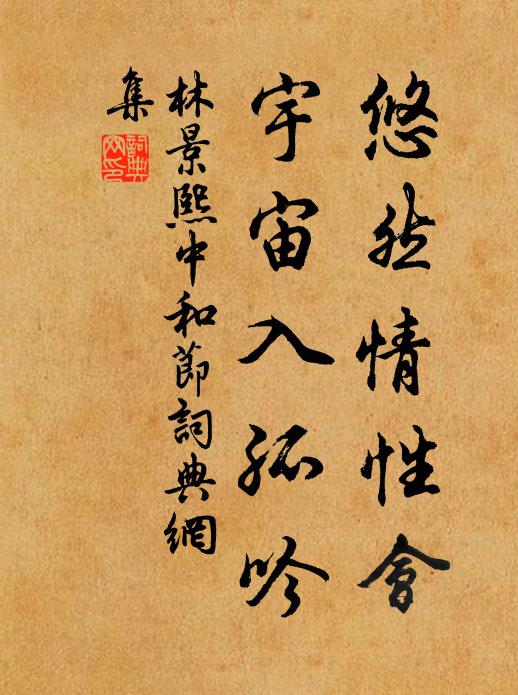 悠然情性會
宇宙入孤吟
林景熙中和節詞典網
集
詞典
网印